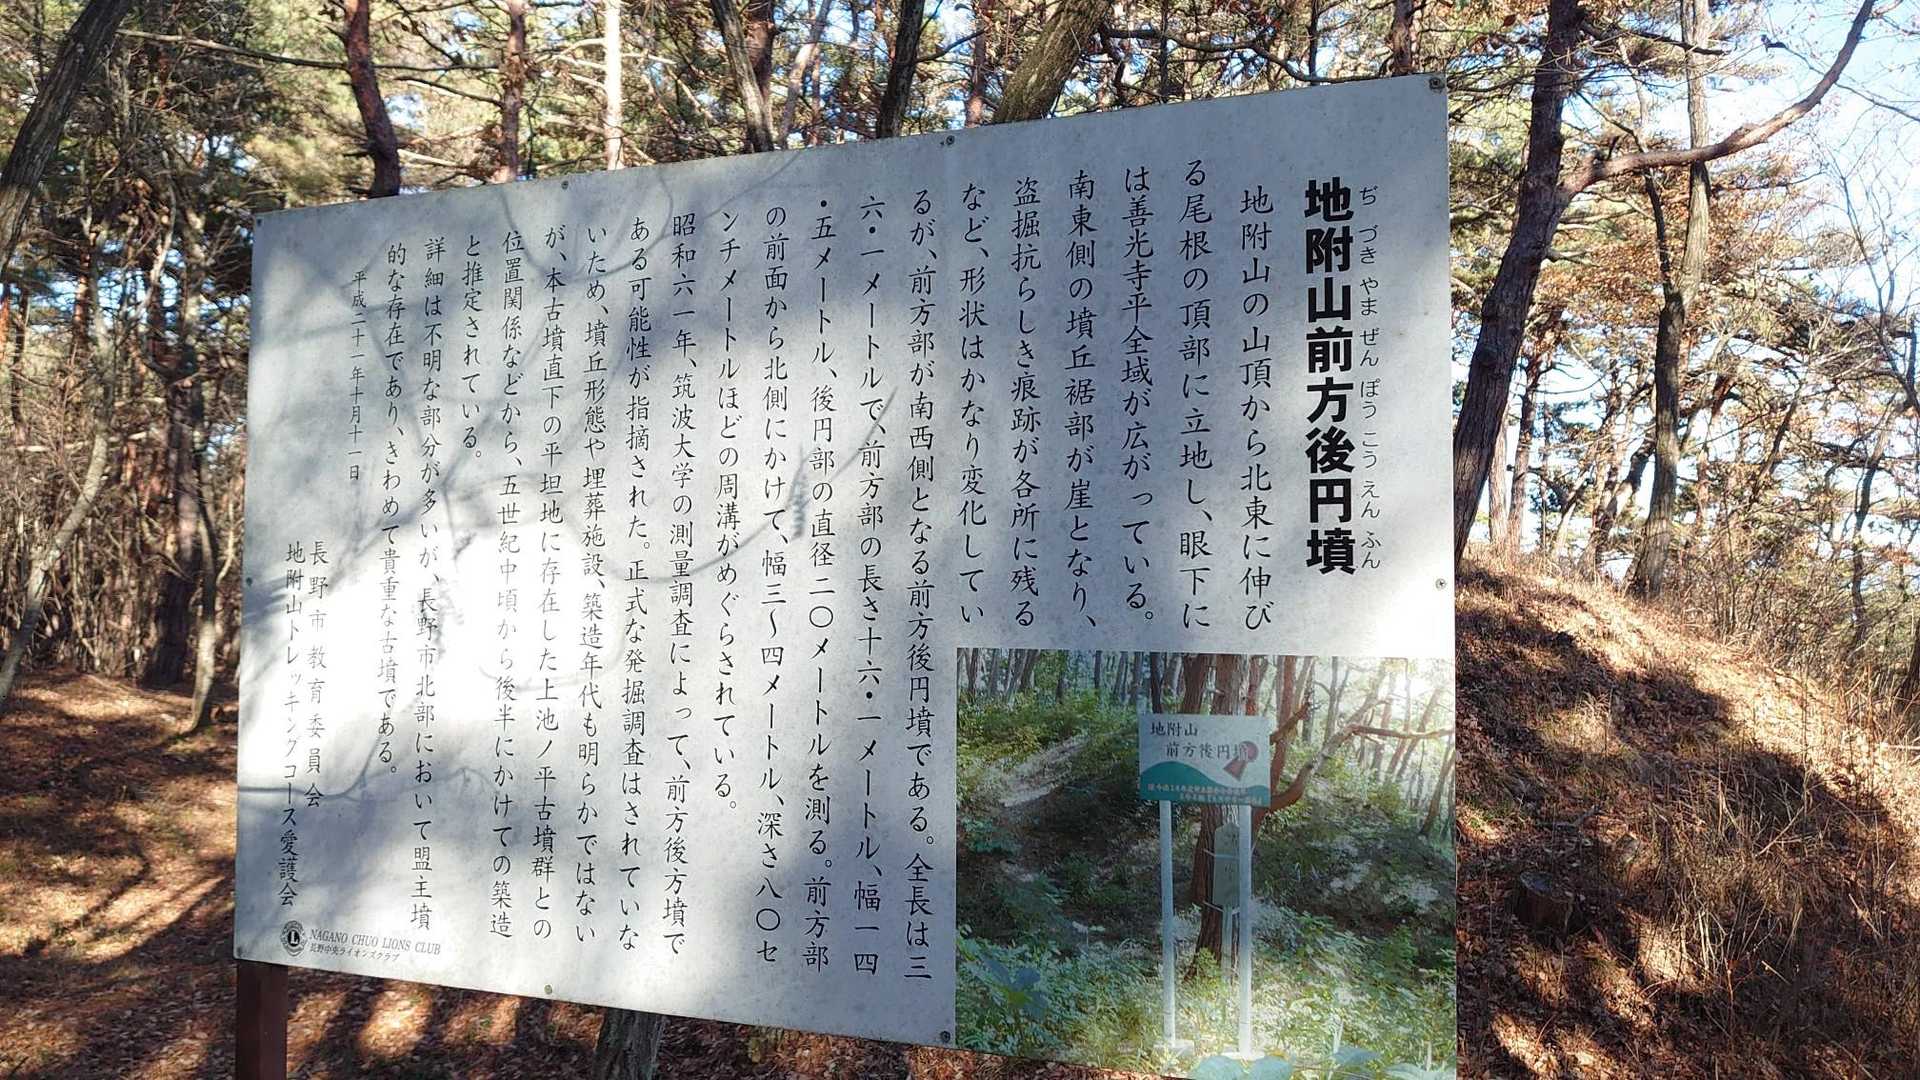 地附山前方後円墳
ぢづきやまぜんぽうこうえんふん
地附山の山頂から北東に伸び
る尾根の頂部に立地し、眼下に
は善光寺平全域が広がっている。
南東側の墳丘裾部が崖となり、
盗掘抗らしき痕跡が各所に残る
など、形状はかなり変化してい
るが、前方部が南西側となる前方後円墳である。全長は三
六・一メートルで、前方部の長さ十六・一メートル、幅一四
・五メートル、後円部の直径二〇メートルを測る。前方部
の前面から北側にかけて、幅三〜四メートル、深さ八〇セ
ンチメートルほどの周溝がめぐらされている。
昭和六一年、筑波大学の測量調査によって、前方後方墳で
ある可能性が指摘された。正式な発掘調査はされていな
いため、墳丘形態や埋葬施設、築造年代も明らかではない
が、本古墳直下の平坦地に存在した上池ノ平古墳群との
位置関係などから、五世紀中頃から後半にかけての築造
と推定されている。
詳細は不明な部分が多いが、長野市北部において盟主墳
的な存在であり、きわめて貴重な古墳である。
平成二十一年十月十一日
長野市教育委員会
地附山トレッキングコース愛護会
L
NAGANO CHUO LIONS CLUB
長野中央ライオンズクラブ
地附山
前方後円墳